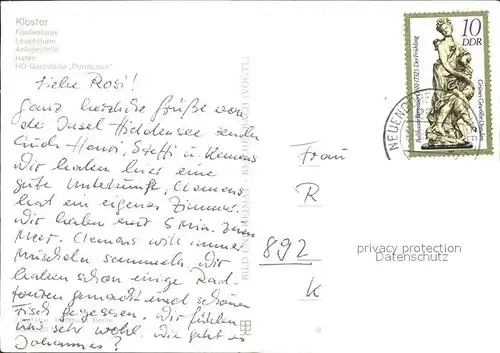 Kloster
Fischerhaus
Leuchtturm
Anlegestelle
Hafen
HO-Gaststätte „Dornbusch“
Liebe Rosi!
Ganz herzliche Grüße von
der Insel Hiddensee senden
Euch Henri, Steffi u. Klemens
Wir haben hier eine
gute Unterkunft, Clemens
hat ein eigenes Zimmer.
Wir haben nur 5 Min. zum
Meer. Clemens will immer
Muscheln sammeln. Wir
haben schon einige Rad-
touren gemacht und schönen
Fisch gegessen. Wir fühlen
uns sehr wohl. Wie geht es
Johannes?
BILD UND HEIMAT REICHENBACH (VOGTL)
Frau
R
892
K
10
DDR
Balthasar Permoser (1651-1732) Der Frühling
Grünes Gewölbe Dresden
NEUENDORF
privacy protection
Datenschutz